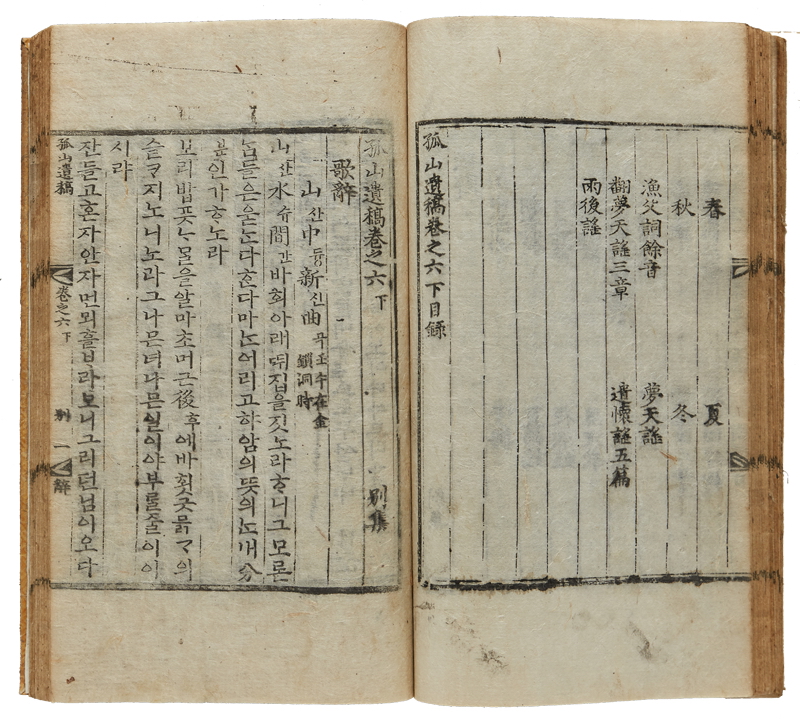 春 夏
秋 冬
漁父詞餘音 夢天謠
翻夢天謠三章 遣懷謠五篇
雨後謠
孤山遺稿卷之六下目錄
孤山遺稿卷之六 下 別集
歌辭
山산中듕新신曲곡 壬午在金鎖洞時
山산水슈間간바회아래ᄠᅱ집을짓노라ᄒᆞ니그모론
ᄂᆞᆷ들은운ᄂᆞᆫ다ᄒᆞᆫ다마ᄂᆞᆫ어리고햐암의ᄠᅳᆺ의ᄂᆞᆫ내分
분인가ᄒᆞ노라
보리밥픗ᄂᆞ물을알마초머근後후에바횟긋믉ᄀᆞ의
슬ᄏᆞ지노니노라그나믄녀나믄일이야부룰줄이이
시랴
잔들고혼자안자먼뫼흘ᄇᆞ라보니그리던님이오다
孤山遺稿 卷之六 下 別 一 辭